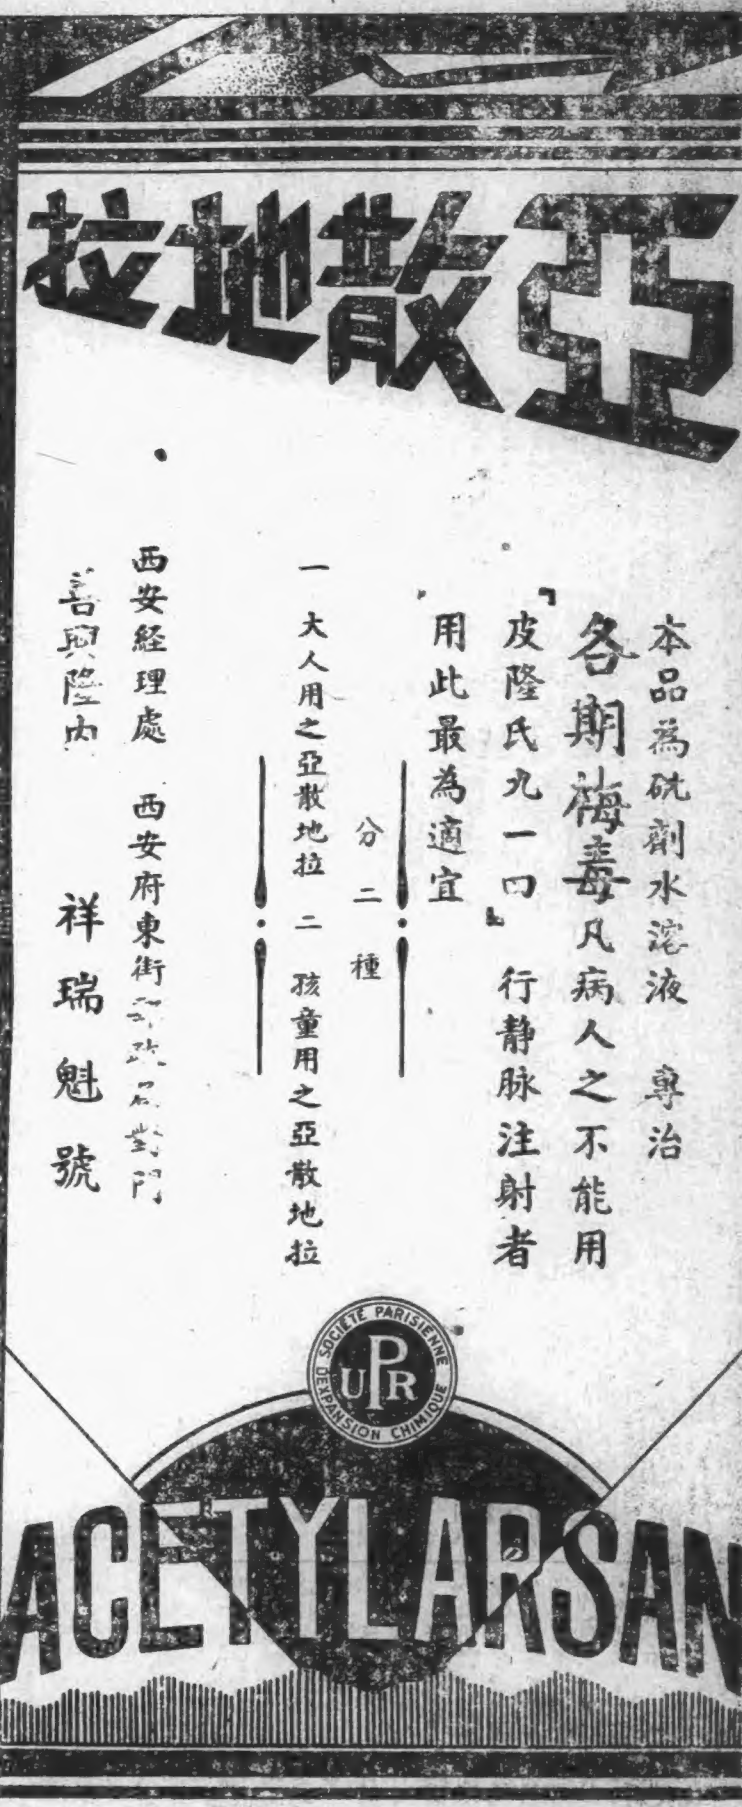 亞散地拉
本品為砒劑水溶液 專治
各期梅毒凡病人之不能用
『皮隆氏九一四』行靜脉注射者
用此最為適宜
分二種
一 大人用之亞散地拉 二 孩童用之亞散地拉
西安經理處 西安府東街郵政局對門
善興隆內 祥瑞魁號
SOCIÉTÉ PARISIENNE
D'EXPANSION CHIMIQUE
UPR
ACETYLARSAN